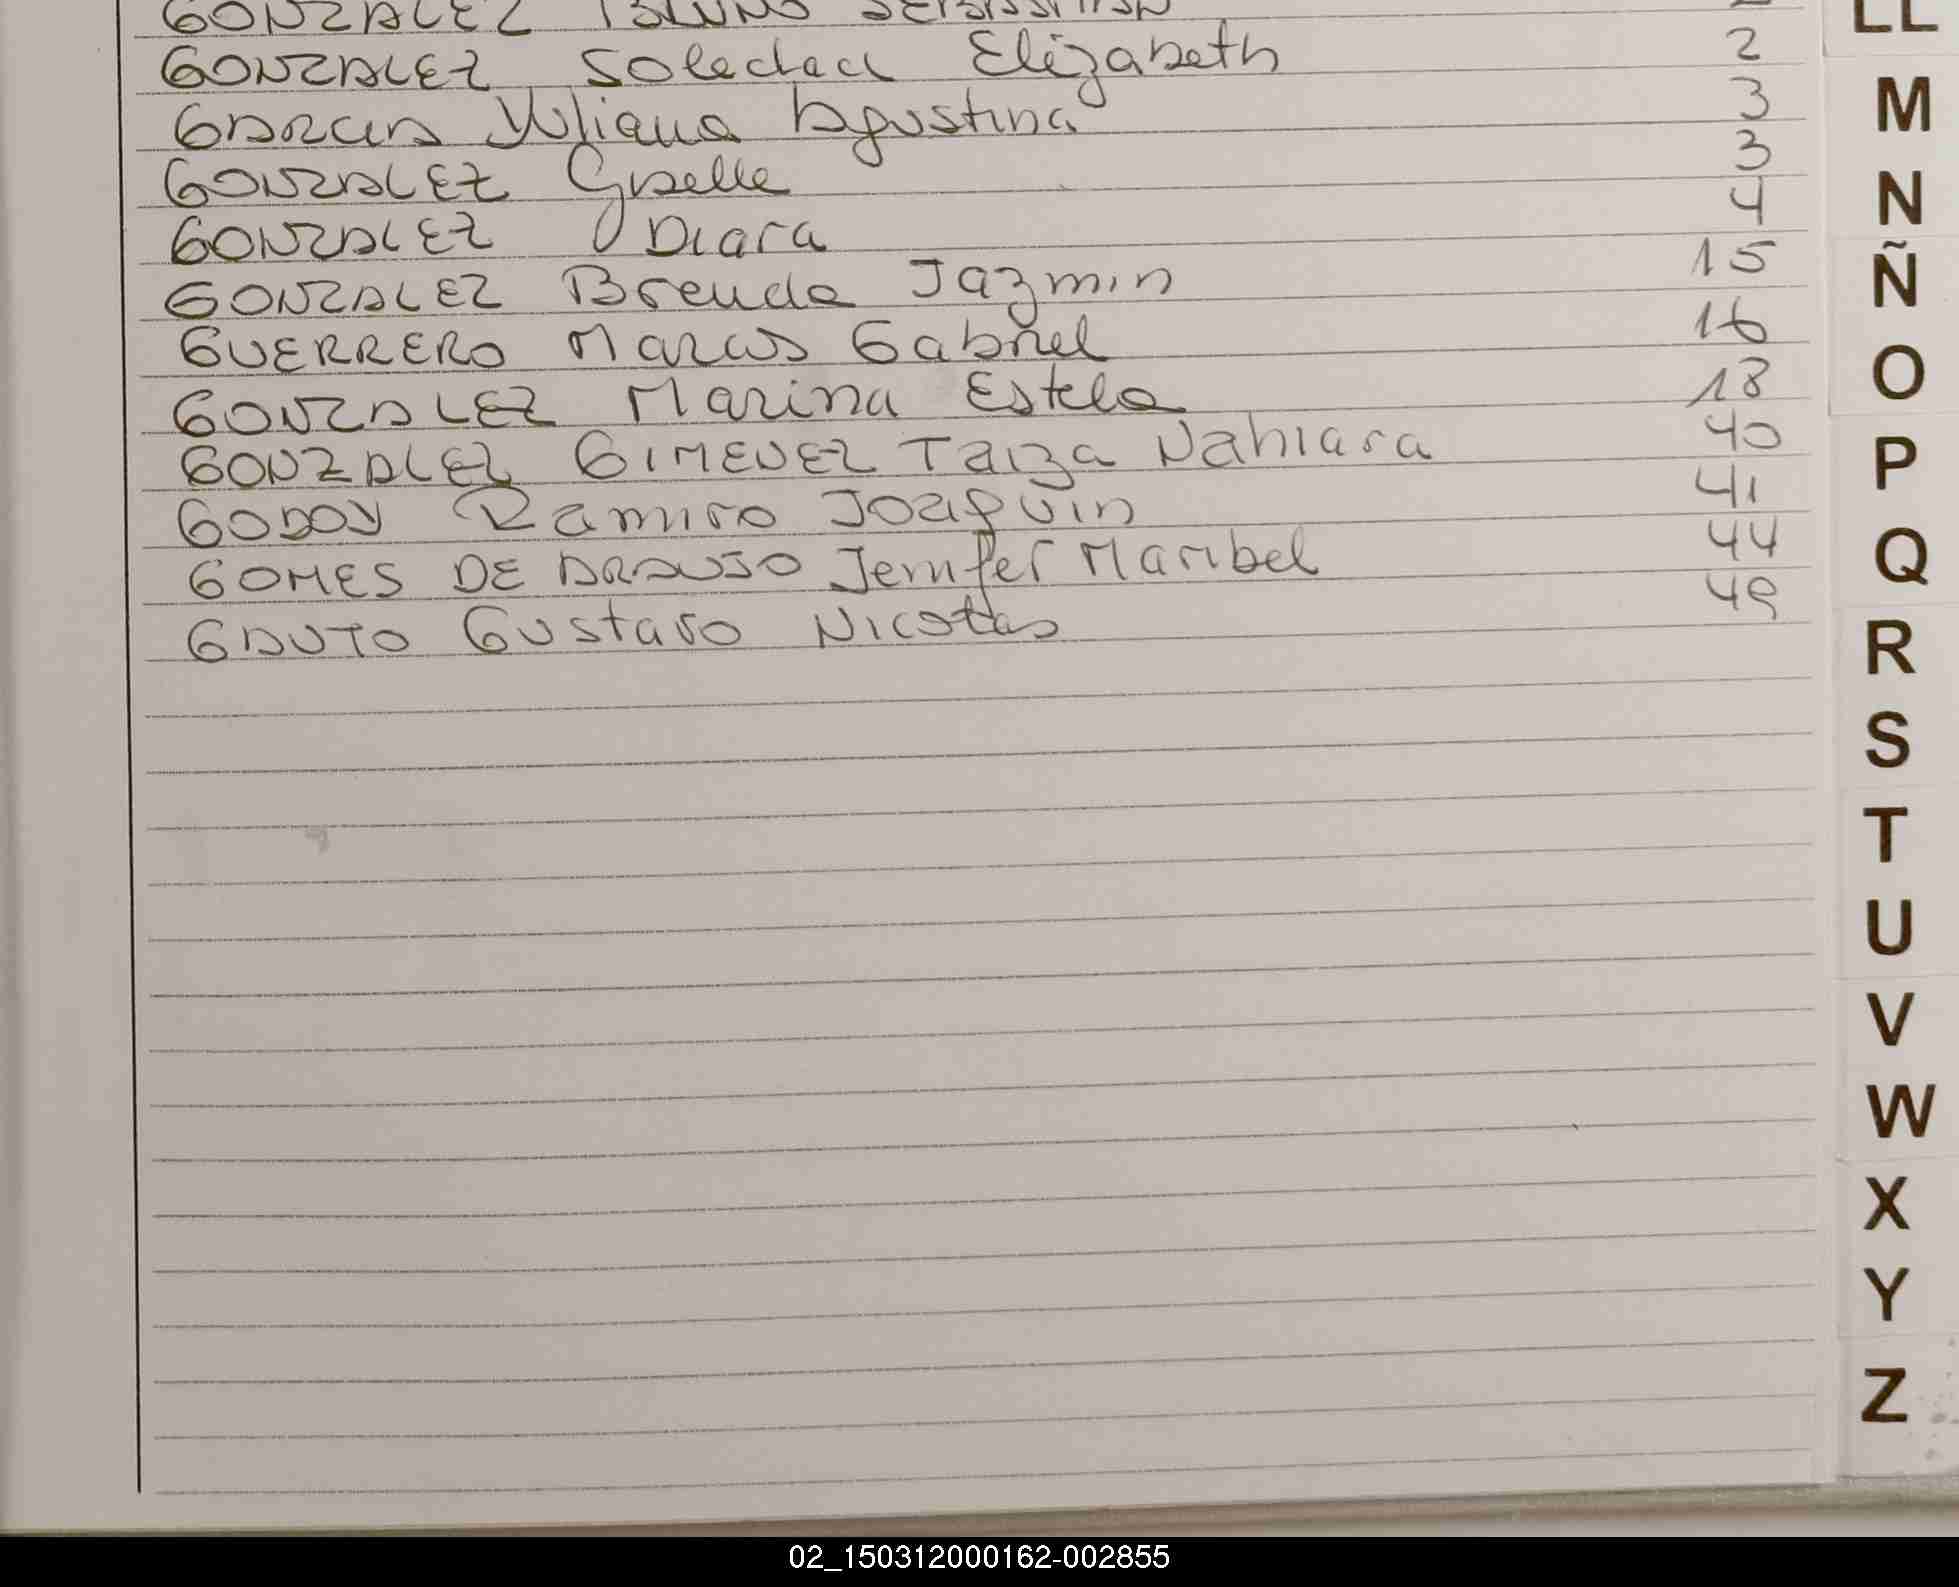 GONZALEZ
GONZALEZ Soledad Elizabeth 2
GARCIA Yuliana Agustina 3
GONZALEZ Giselle 3
GONZALEZ Diara 4
GONZALEZ Brenda Jazmin 15
GUERRERO Marcos Gabriel 16
GONZALEZ Marina Estela 18
GONZALEZ GIMENEZ Taiza Nahiara 40
GODOY Ramiro Joaquin 41
GOMES DE ARAUJO Jenifer Maribel 44
GAUTO Gustavo Nicolas 49
LL
M
N
Ñ
O
P
Q
R
S
T
U
V
W
X
Y
Z
02_150312000162-002855